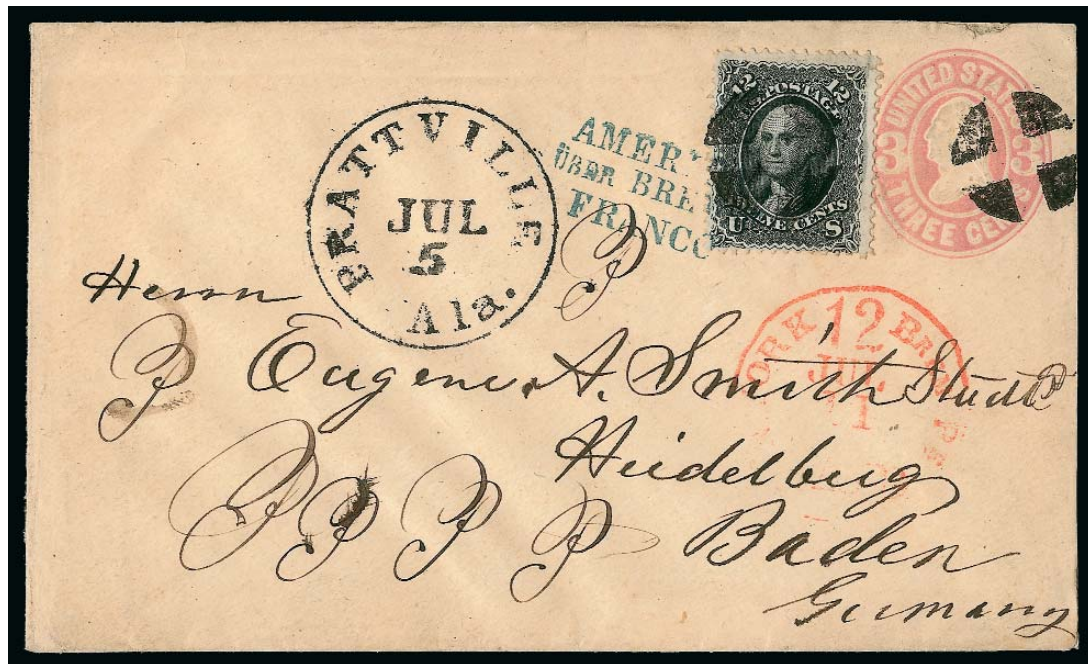 PRATTVILLE
JUL
5
Ala.
AMERI
ÜBER BRE
FRANCO
12 12
U.S. POSTAGE
TWELVE CENTS
U S
UNITED STATES
3 3
THREE CENTS
ORK 12 BR
JUL
Herrn
Eugene A. Smith Studt
Heidelberg
Baden
Germany